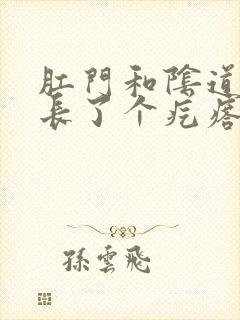 肛門和陰道
長了个疙瘩
孫雲飛